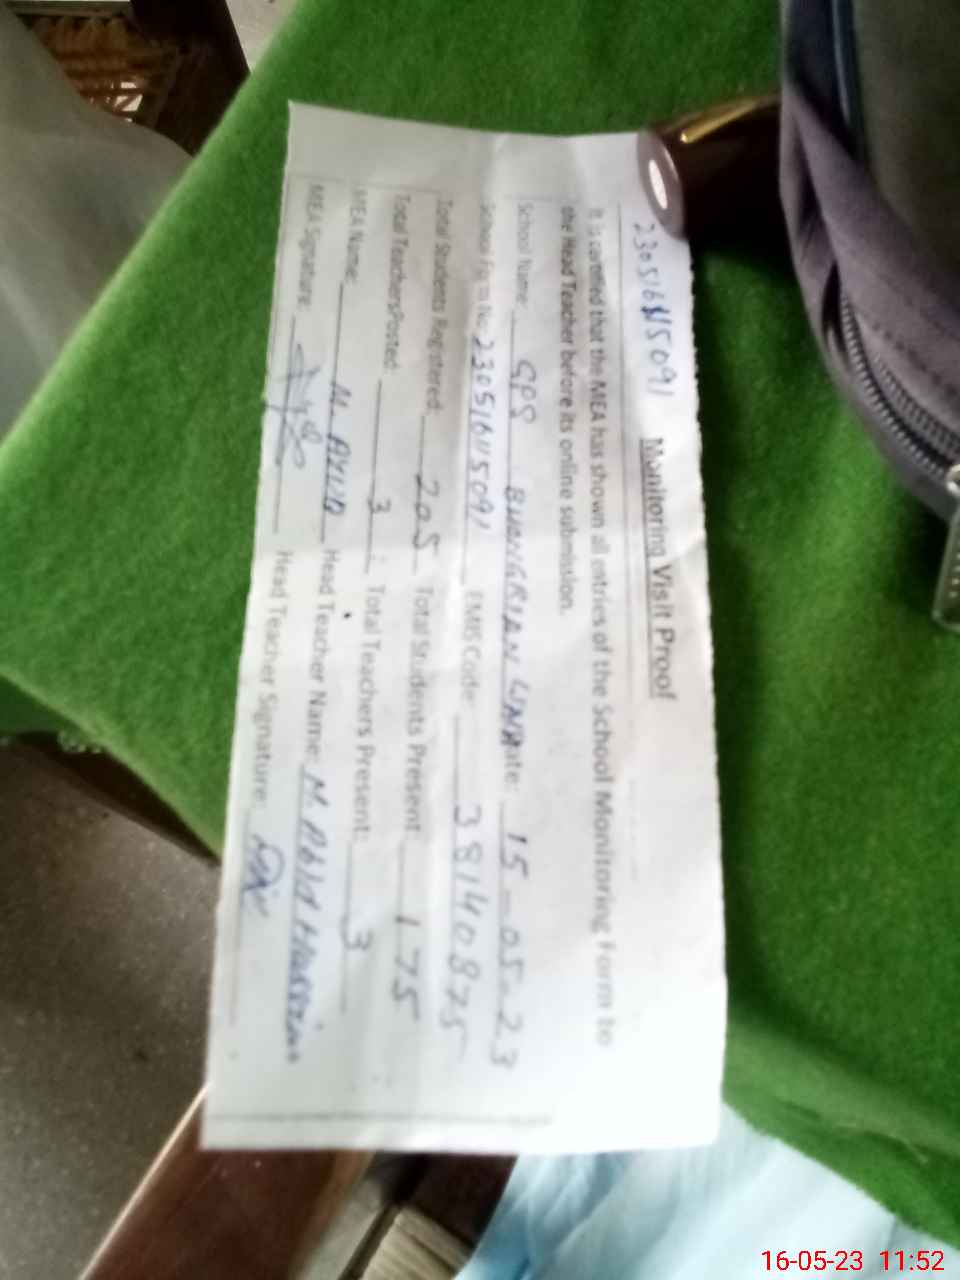 230516115091
Monitoring Visit Proof
It is certified that the MEA has shown all entries of the School Monitoring Form to
the Head Teacher before its online submission.
School Name: GPS BHANGRIAN WALA Date: 15-05-23
School Form No: 230516115091 EMIS Code: 38140875
Total Students Registered: 205 Total Students Present: 175
Total Teachers Posted: 3 Total Teachers Present: 3
MEA Name: M. AYUB Head Teacher Name: M. Abid Hussain
MEA Signature: Head Teacher Signature:
16-05-23 11:52